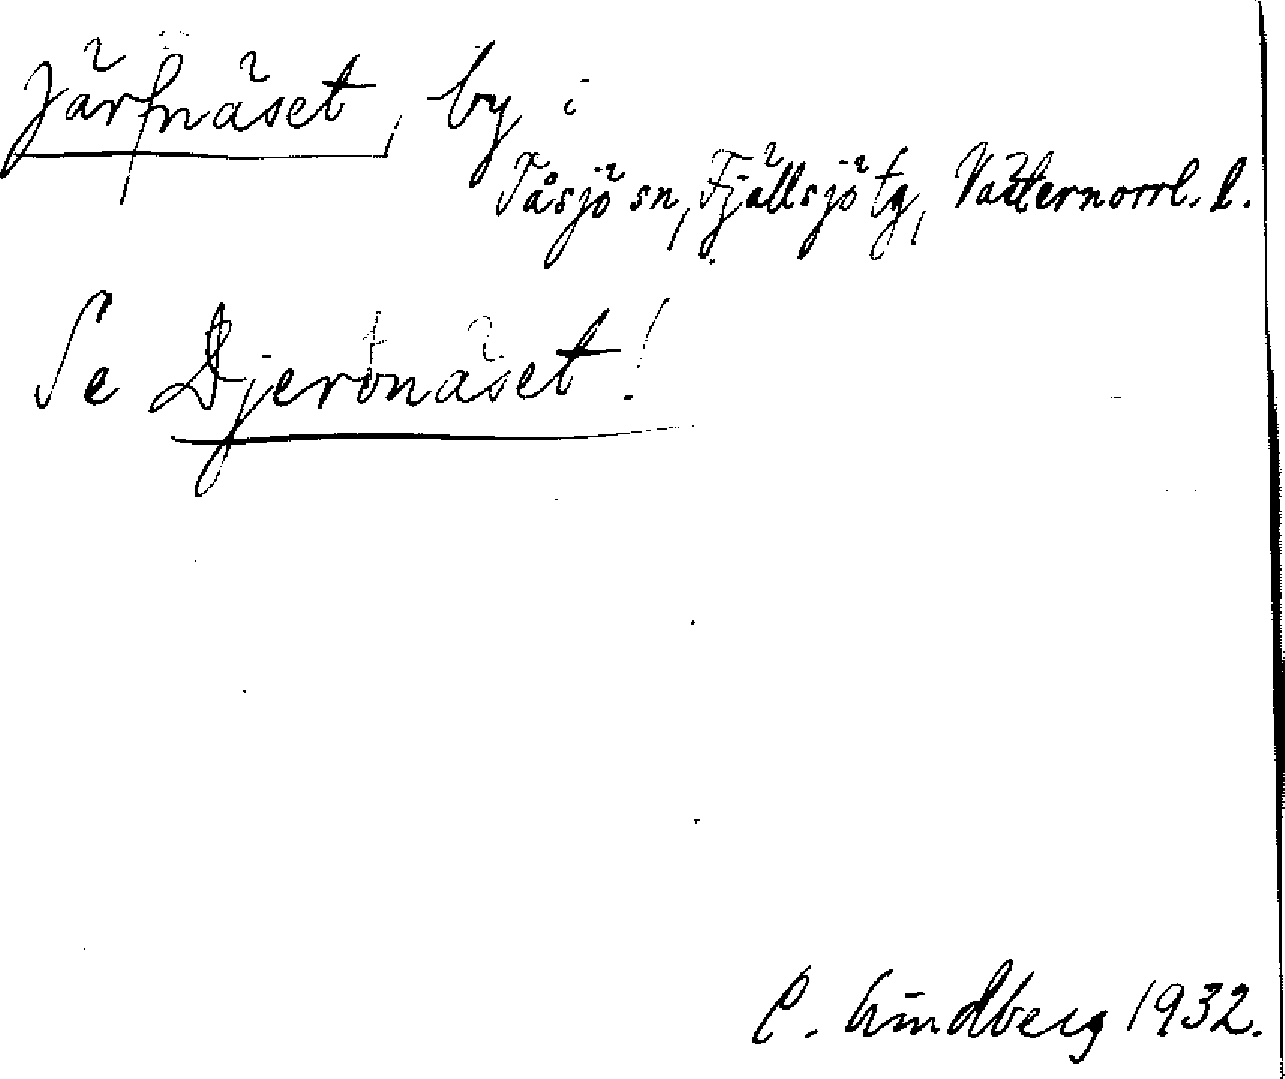 Järfnäset, by i
Tåsjö sn, Fjällsjö tg, Västernorrl. l.
Se Djertnäset!
C. Lindberg 1932.